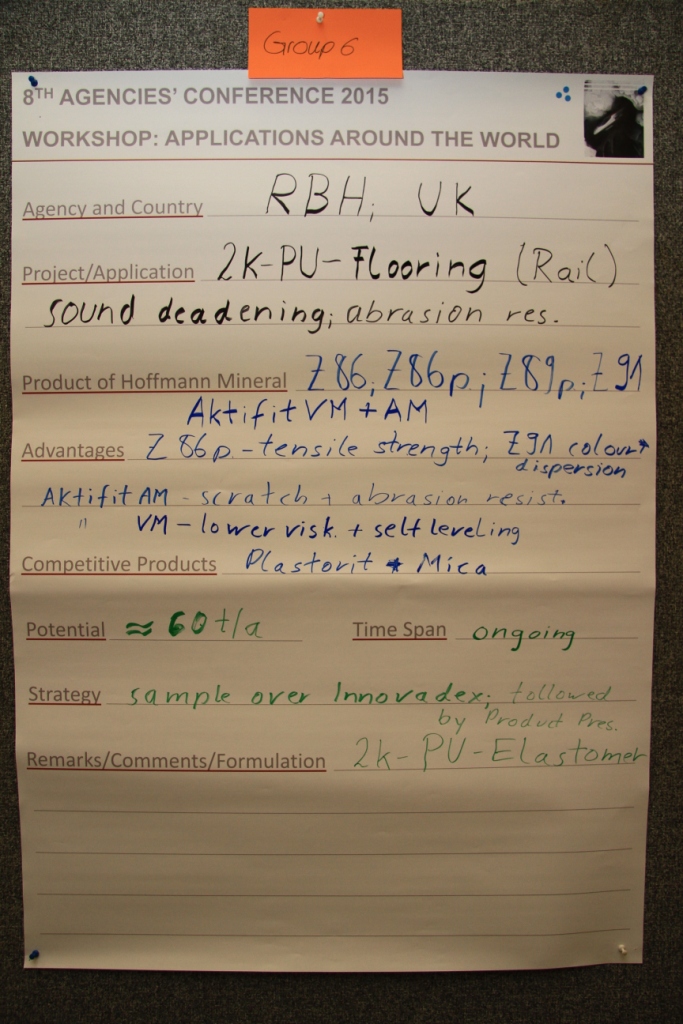 Group 6
8TH AGENCIES' CONFERENCE 2015
WORKSHOP: APPLICATIONS AROUND THE WORLD
Agency and Country RBH; UK
Project/Application 2K-PU-Flooring (Rail)
sound deadening; abrasion res.
Product of Hoffmann Mineral Z86; Z86p; Z89p; Z91
Aktifit VM + AM
Advantages Z 86p - tensile strength; Z91 colour +
dispersion
Aktifit AM - scratch + abrasion resist.
" VM - lower visk. + self leveling
Competitive Products Plastorit + Mica
Potential ≈ 60 t/a Time Span ongoing
Strategy sample over Innovadex; followed
by Product Pres.
Remarks/Comments/Formulation 2k-PU-Elastomer